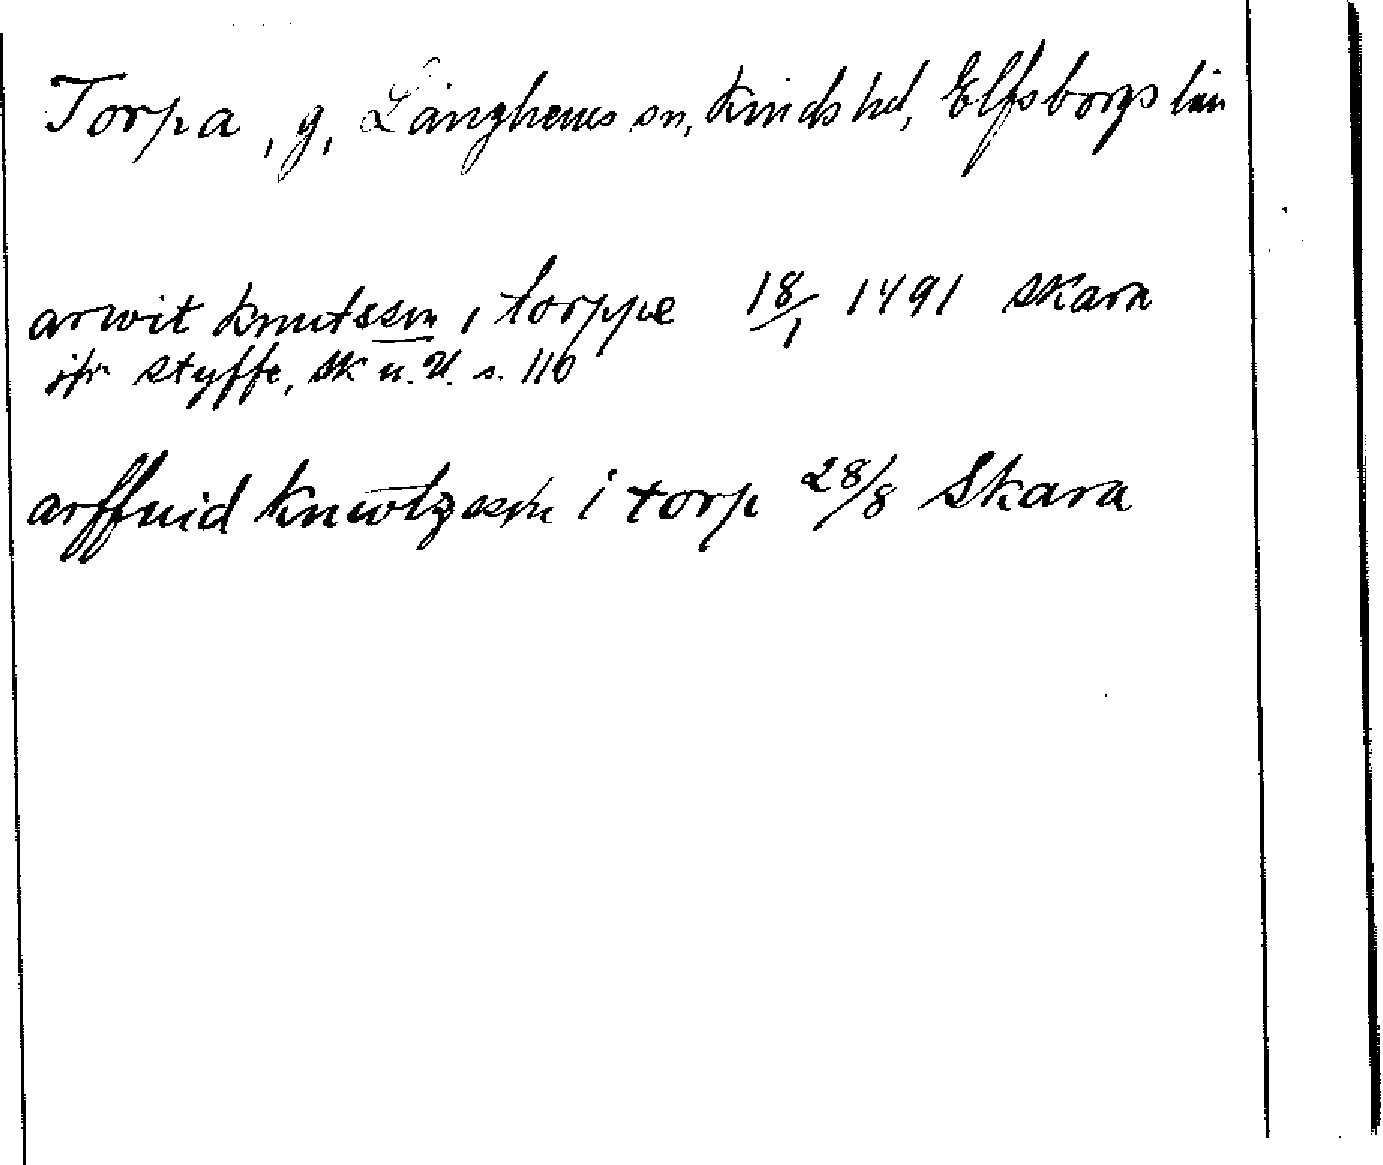 Torpa, g, Långhems sn, Kinds hd, Elfsborgs län
arwit knutssøn i torppe 18/1 1491 Skara
jfr Styffe, Sk u. U. s. 110
arffuid knwtzsøn i torp 28/8 Skara